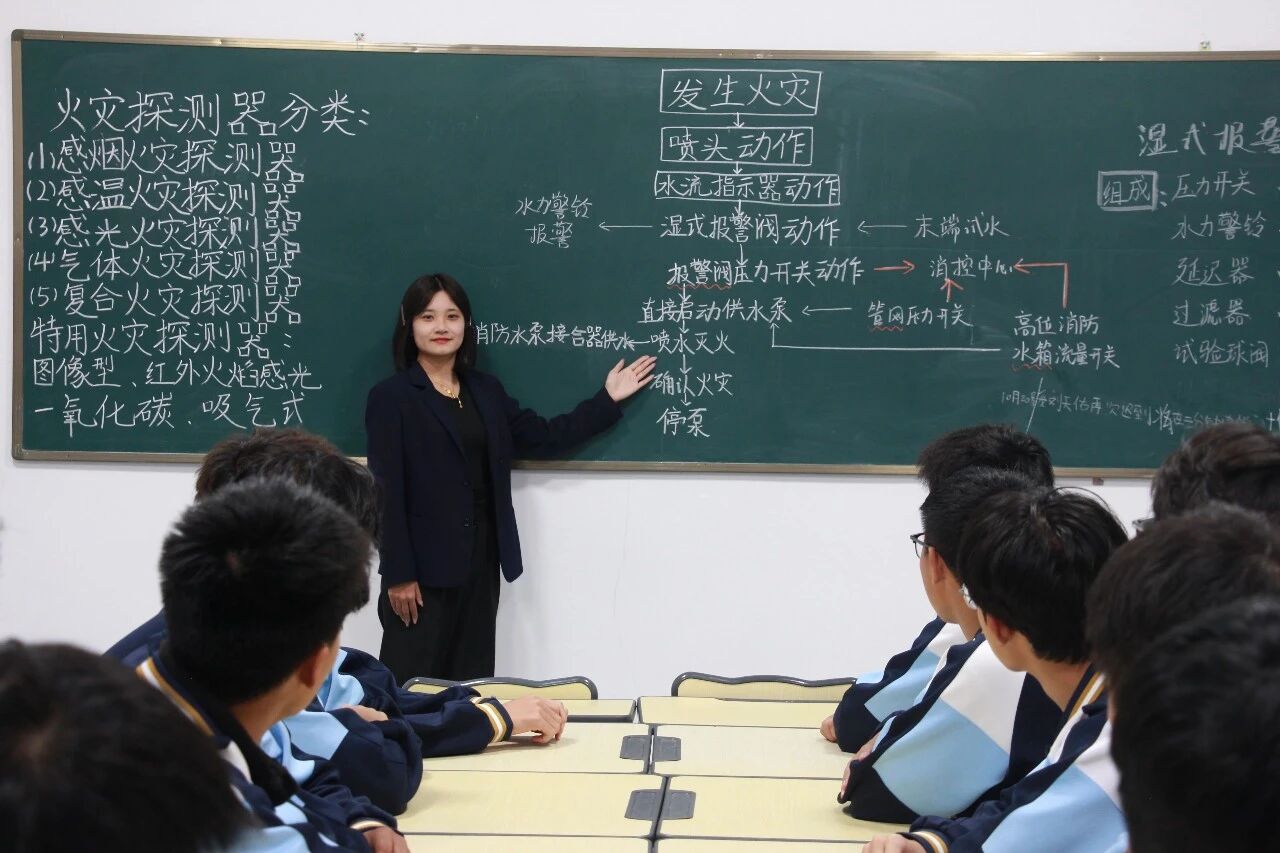 火灾探测器分类:
(1)感烟火灾探测器
(2)感温火灾探测器
(3)感光火灾探测器
(4)气体火灾探测器
(5)复合火灾探测器
特用火灾探测器:
图像型、红外火焰感光
一氧化碳、吸气式
发生火灾
喷头动作
水流指示器动作
水力警铃
报警
湿式报警阀动作
末端试水
报警阀压力开关动作
消控中心
直接启动供水泵
管网压力开关
高位消防
水箱流量开关
消防水泵接合器供水
喷水灭火
确认火灾
停泵
湿式报警
组成:
压力开关
水力警铃
延迟器
过滤器
试验球阀